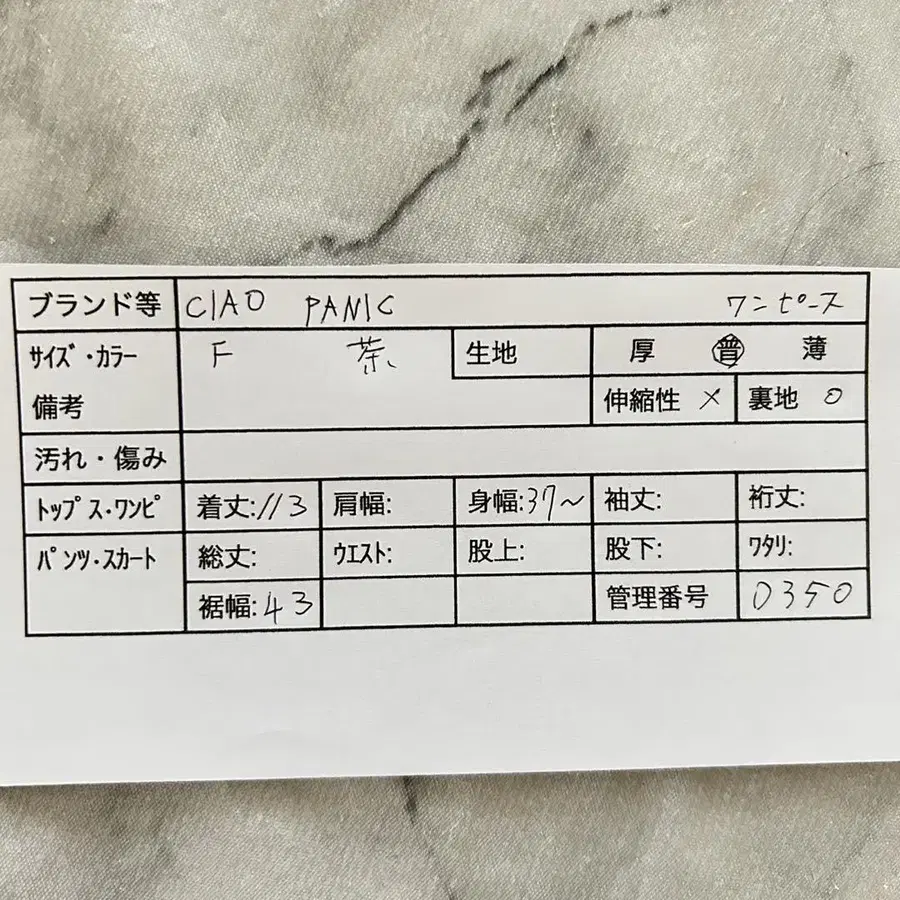 ブランド等 CIAO PANIC ワンピース
サイズ・カラー F 茶 生地 厚 普 薄
備考 伸縮性 × 裏地 ○
汚れ・傷み
トップス・ワンピ 着丈:113 肩幅: 身幅:37〜 袖丈: 裄丈:
パンツ・スカート 総丈: ウエスト: 股上: 股下: ワタリ:
裾幅:43 管理番号 0350